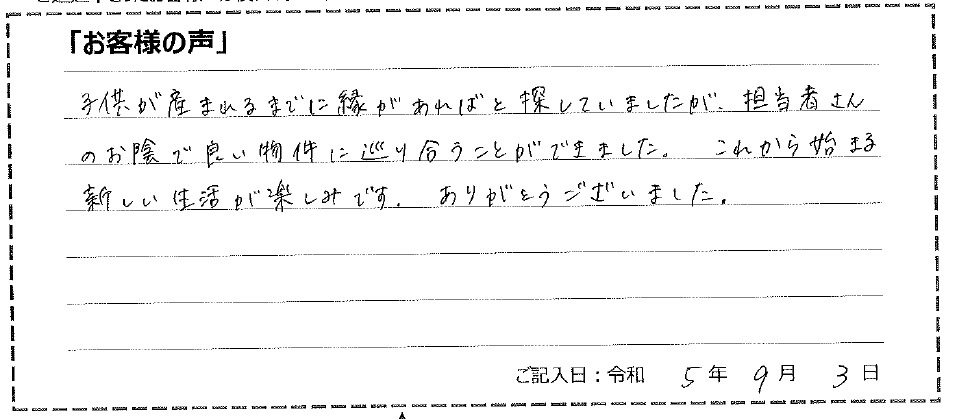 「お客様の声」
子供が産まれるまでに縁があればと探していましたが、担当者さん
のお陰で良い物件に巡り合うことができました。 これから始まる
新しい生活が楽しみです。 ありがとうございました。
ご記入日：令和 5年 9月 3日